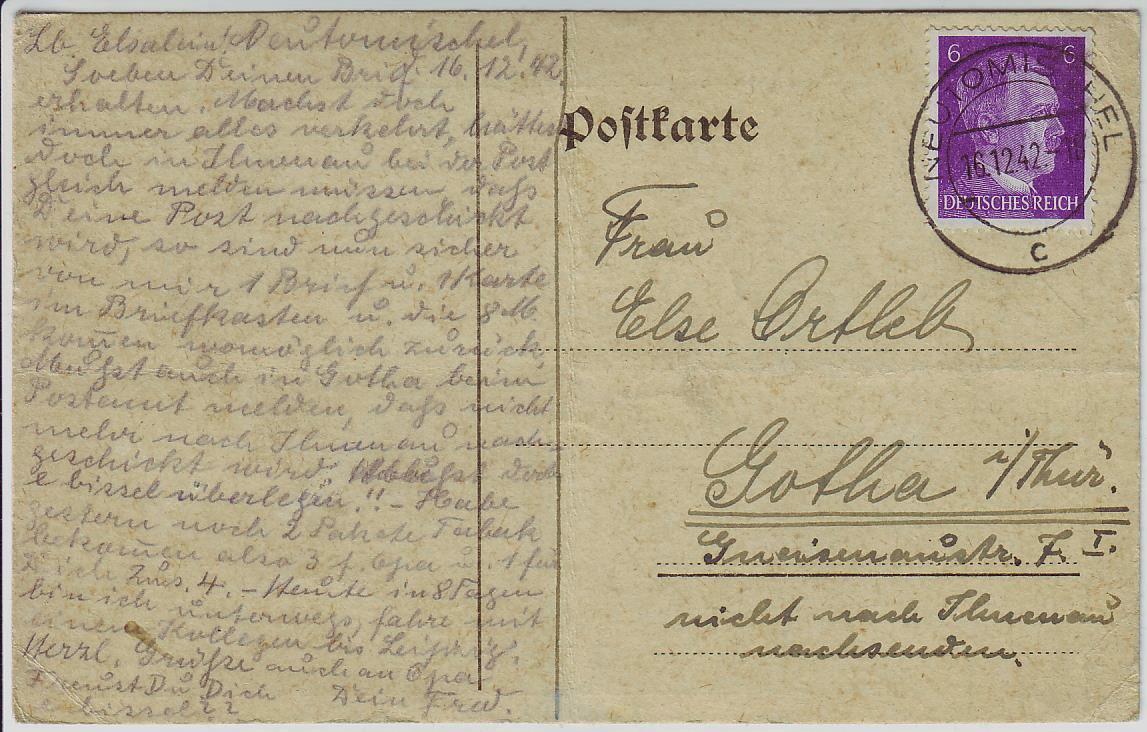 Lb. Elselein! Neutomischel,
Soeben Deinen Brief 16.12.42
erhalten. Machst doch
immer alles verkehrt, hättest
doch in Ilmenau bei der Post
gleich melden müssen, daß
Deine Post nachgeschickt
wird, so sind nun sicher
von mir 1 Brief u. 1 Karte
im Briefkasten u. die 8 M.
kom̅en womöglich zurück.
Mußt auch in Gotha beim
Postamt melden, daß nicht
mehr nach Ilmenau nach-
geschickt wird. doch
e bissel überlegen!! - Habe
gestern noch 2 Pakete Tabak
bekom̅en also 3 f. Opa u. 1 für
Dich Zus. 4. - Heute in 8 Tagen
bin ich unterwegs, fahre mit
einem Kollegen bis Leipzig.
Herzl. Grüße auch an Opa
Freust Du Dich Dein Fred.
e bissel??
Postkarte
6 6
DEUTSCHES REICH
NEUTOMISCHEL
16.12.42
c
Frau
Else Ortleb
Gotha i/Thür.
Gneisenaustr. 7. I.
nicht nach Ilmenau
nachsenden.